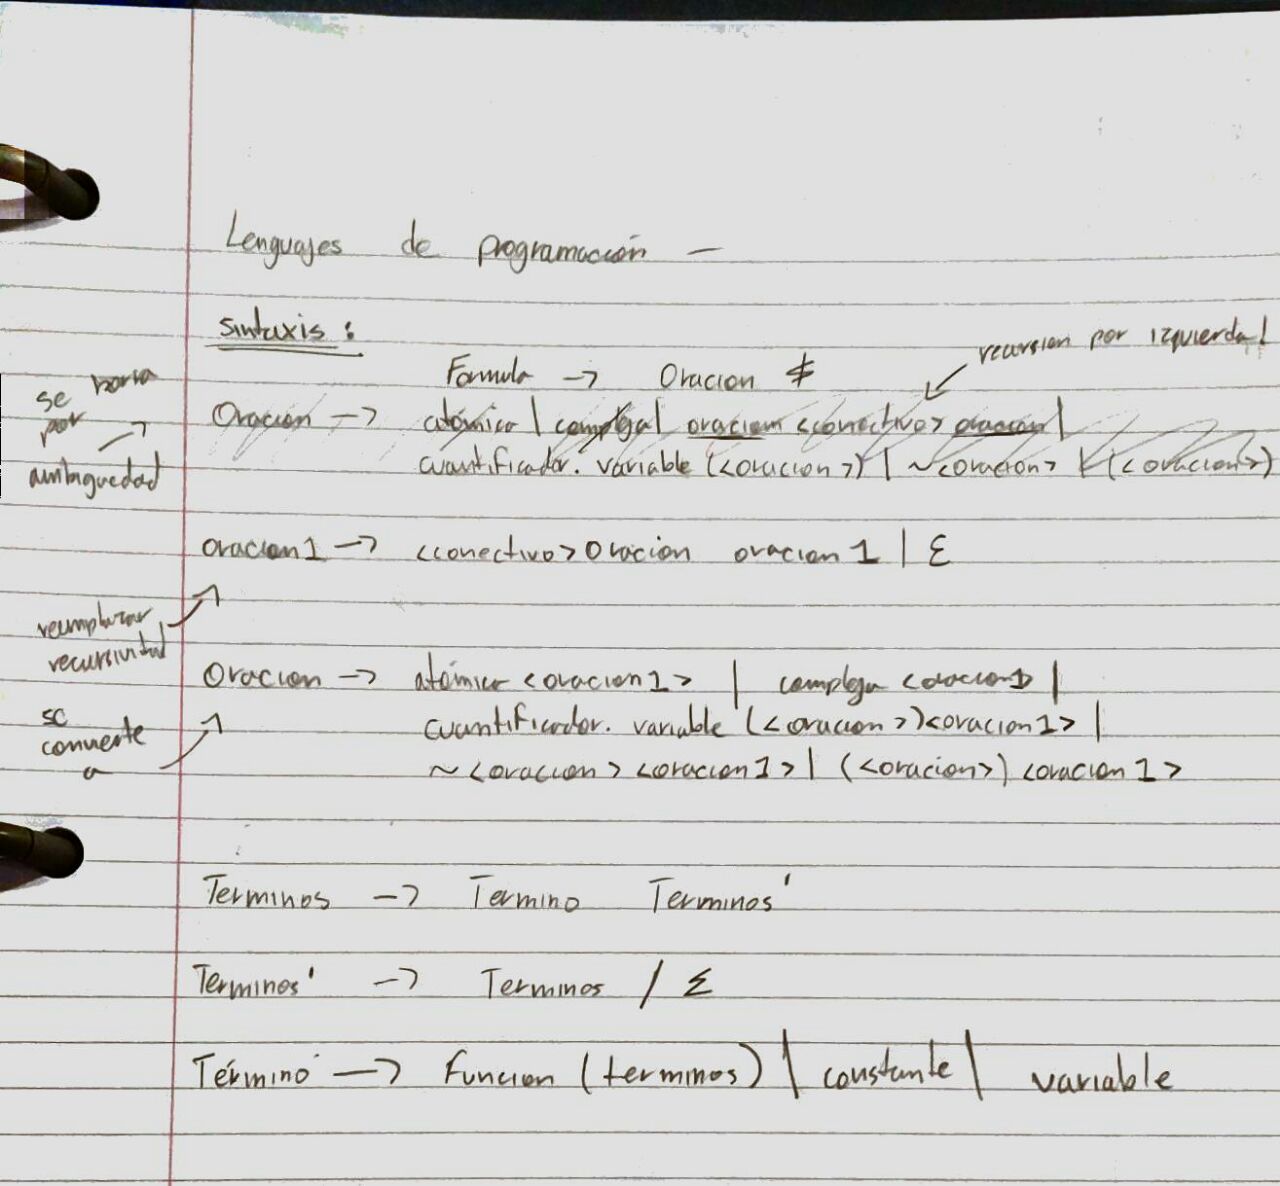 Lenguajes de programación —
Sintaxis :
recursion por izquierda!
Formula -> Oracion $
se borra
por
ambiguedad
Oracion -> atómica | compleja | oracion <conectivo> oracion |
cuantificador. variable (<oracion>) | ~<oracion> | (<oracion>)
oracion1 -> <conectivo> Oracion oracion 1 | Ɛ
reemplazar
recursividad
Oracion -> atómica <oracion1> | compleja <oracion1> |
se
convierte
a
cuantificador. variable (<oracion>)<oracion1> |
~<oracion> <oracion1> | (<oracion>) <oracion1>
Terminos -> Termino Terminos'
Terminos' -> Terminos / Σ
Término -> Funcion (terminos) | constante | variable